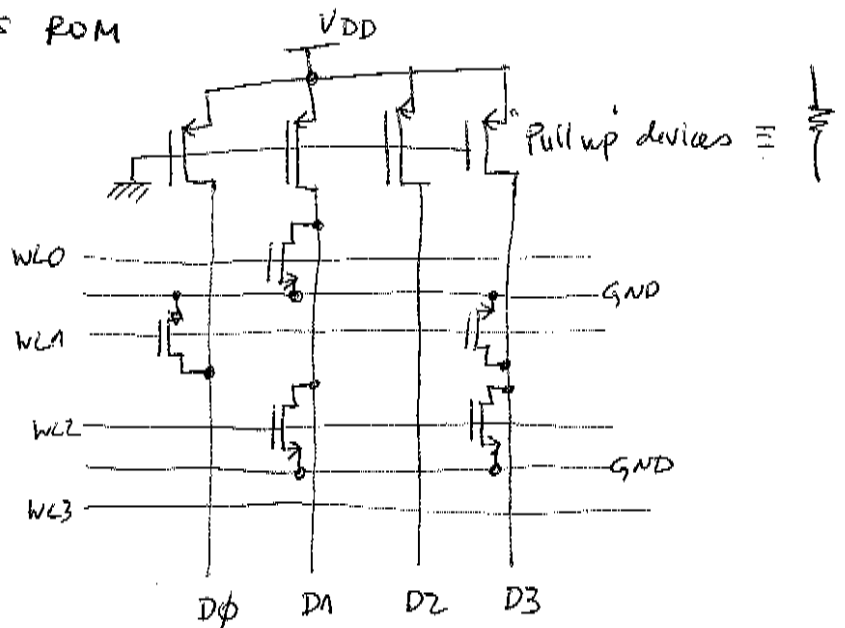 ROM
VDD
"Pull up" devices ≡
WL0
GND
WL1
WL2
GND
WL3
D0 D1 D2 D3